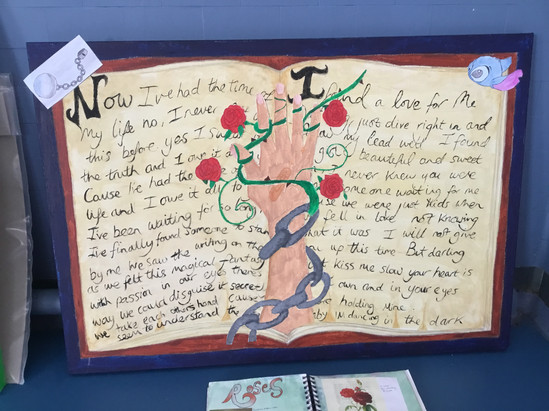 Now I've had the time of
My life no, I never
this before yes I sw
the truth and I owe it
Cause I've had the
life and I owe it all to
I've been waiting for so long
I've finally found someone to stan
by me We saw the writing on the
as we felt this magical fantas
with passion in our eyes there's
way we could disguise it secretl
we take each others hand cause
seem to understand the
I found a love for Me
just dive right in and
my lead well I found
beautiful and sweet
never knew you were
someone waiting for me
se we were just kids when
fell in love not knowing
what it was I will not give
you up this time But darling
st kiss me slow your heart is
own and in your eyes
re holding Mine
by I'm dancing in the dark
Roses